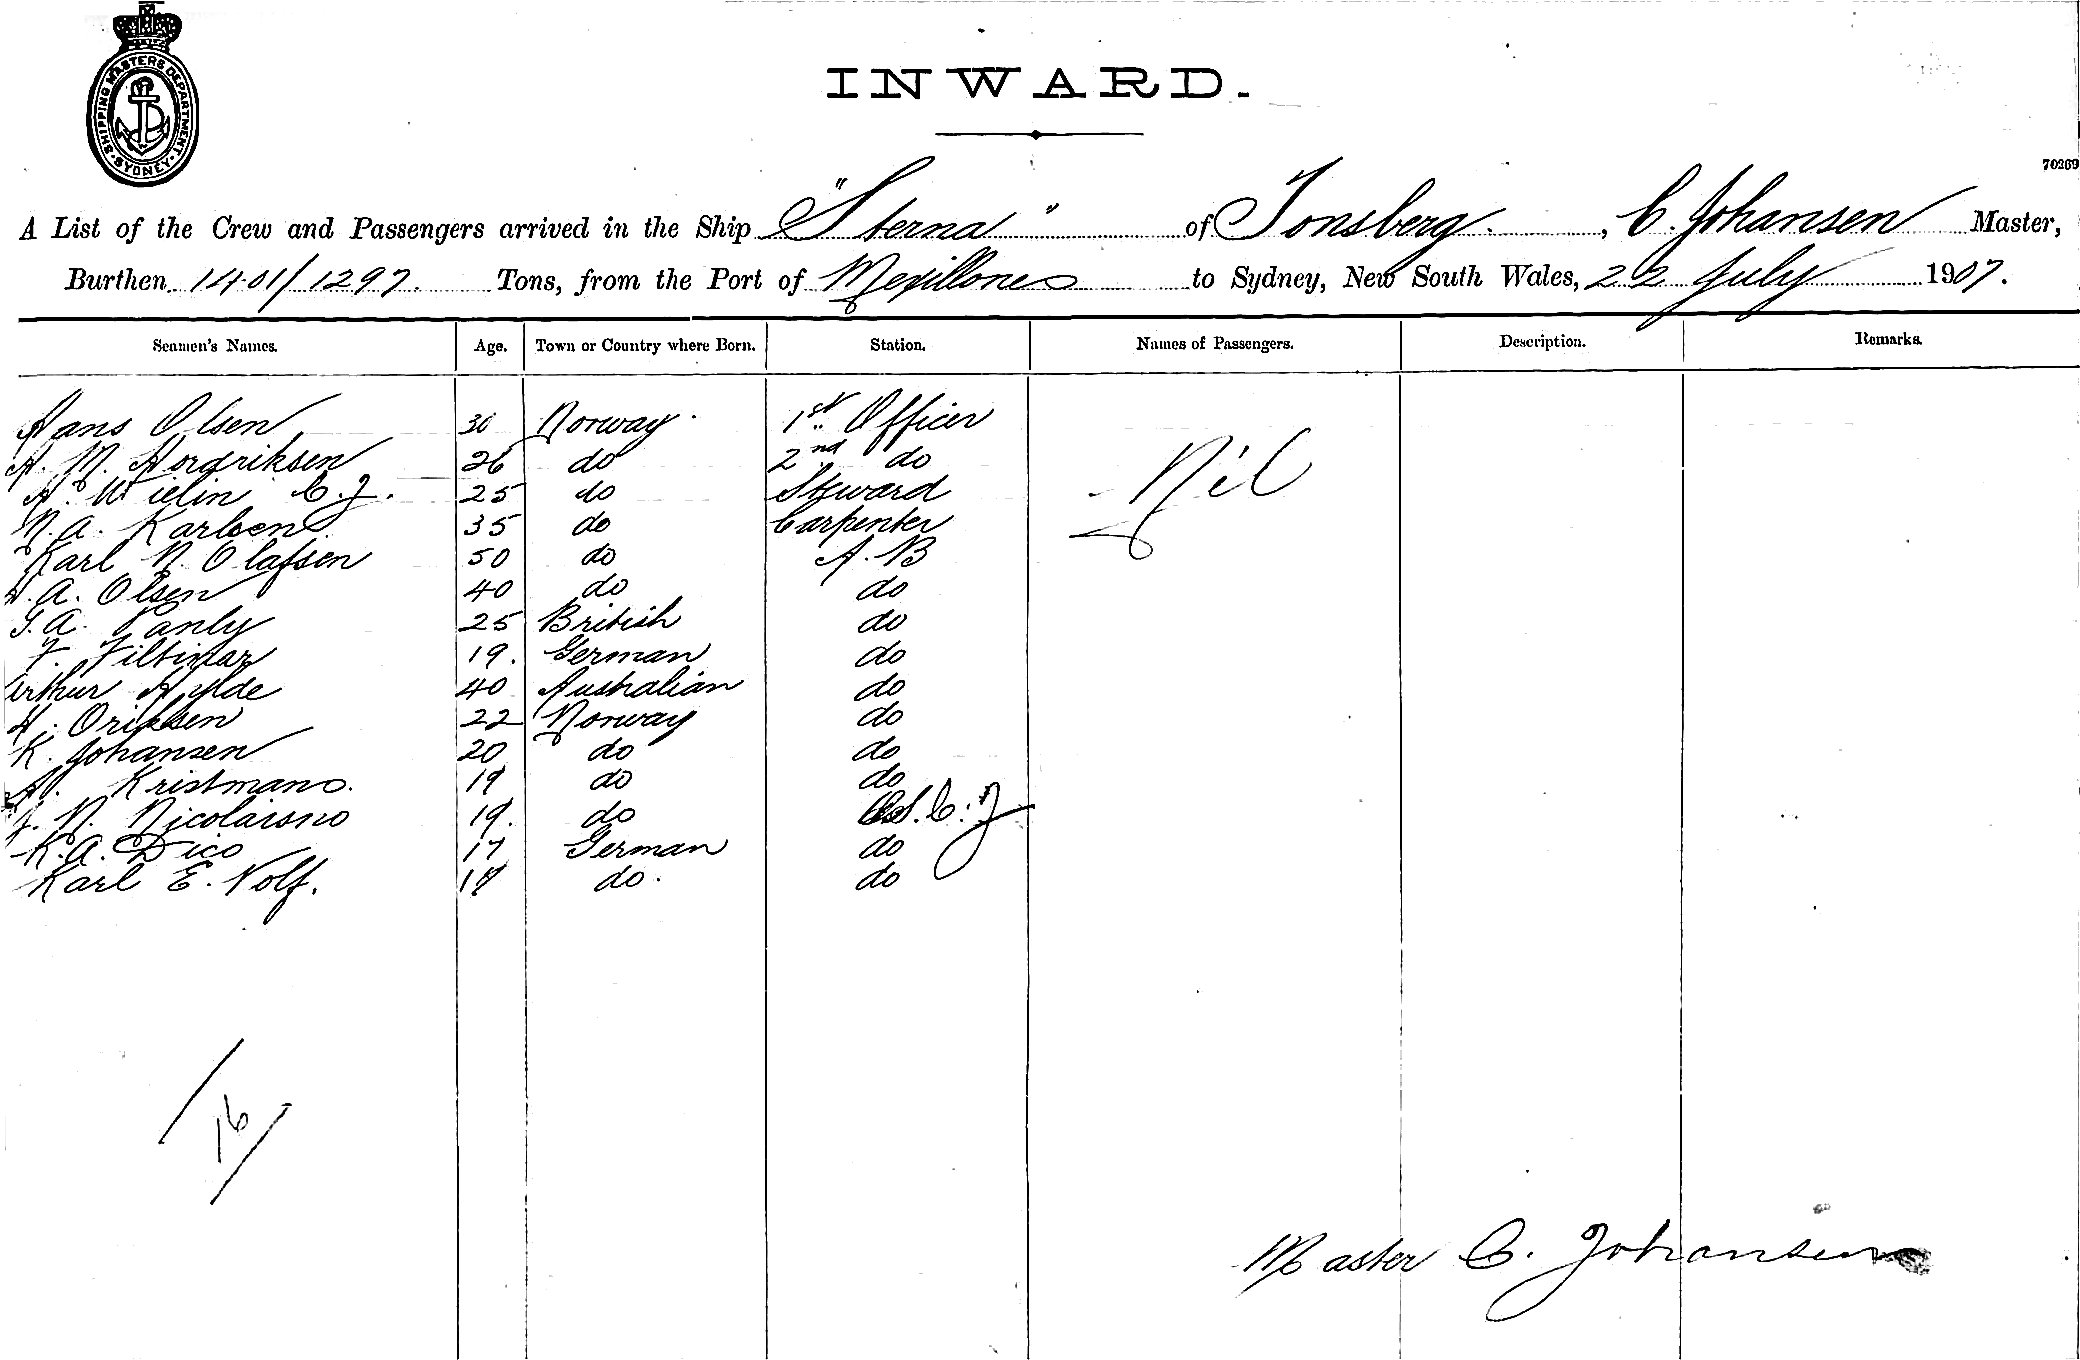 SHIPPING MASTERS DEPARTMENT · SYDNEY ·
INWARD.
70269
A List of the Crew and Passengers arrived in the Ship "Sterna" of Tonsberg. , C. Johansen Master,
Burthen 1401/1297. Tons, from the Port of Mexillones to Sydney, New South Wales, 22 July 1907.
Seamen's Names. Age. Town or Country where Born. Station. Names of Passengers. Description. Remarks.
Hans Olsen 30 Norway. 1st Officer
A. M. Hordriksen 26 do 2nd do
A. Wielin C.J. 25 do Steward Nil
N. A. Karlsen 35 do Carpenter
Karl N. Olafsen 50 do A.B
A. Olsen 40 do do
25 British do
F. 19. German do
Arthur Hylde 40 Australian do
22 Norway do
K. Johansen 20 do do
Kristmano. 19 do do
N. Nicolaisno 19. do
K. A. Dico 17 German do
Karl E. Nolf. 17 do. do
16
Master C. Johansen